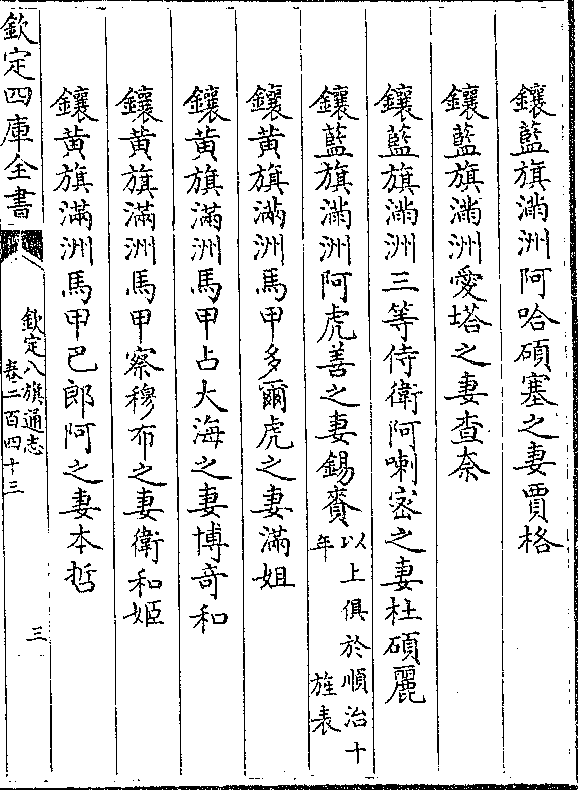 鑲藍旗滿洲阿哈碩塞之妻賈格
鑲藍旗滿洲愛塔之妻查奈
鑲藍旗滿洲三等侍衛阿喇密之妻杜碩麗
鑲藍旗滿洲阿虎善之妻錫賚以上俱於順治十年旌表
鑲黃旗滿洲馬甲多爾虎之妻滿姐
鑲黃旗滿洲馬甲占大海之妻博竒和
鑲黃旗滿洲馬甲察穆布之妻衛和姬
鑲黃旗滿洲馬甲巴郎阿之妻本哲
欽定四庫全書
欽定八旗通志
卷二百四十三
三